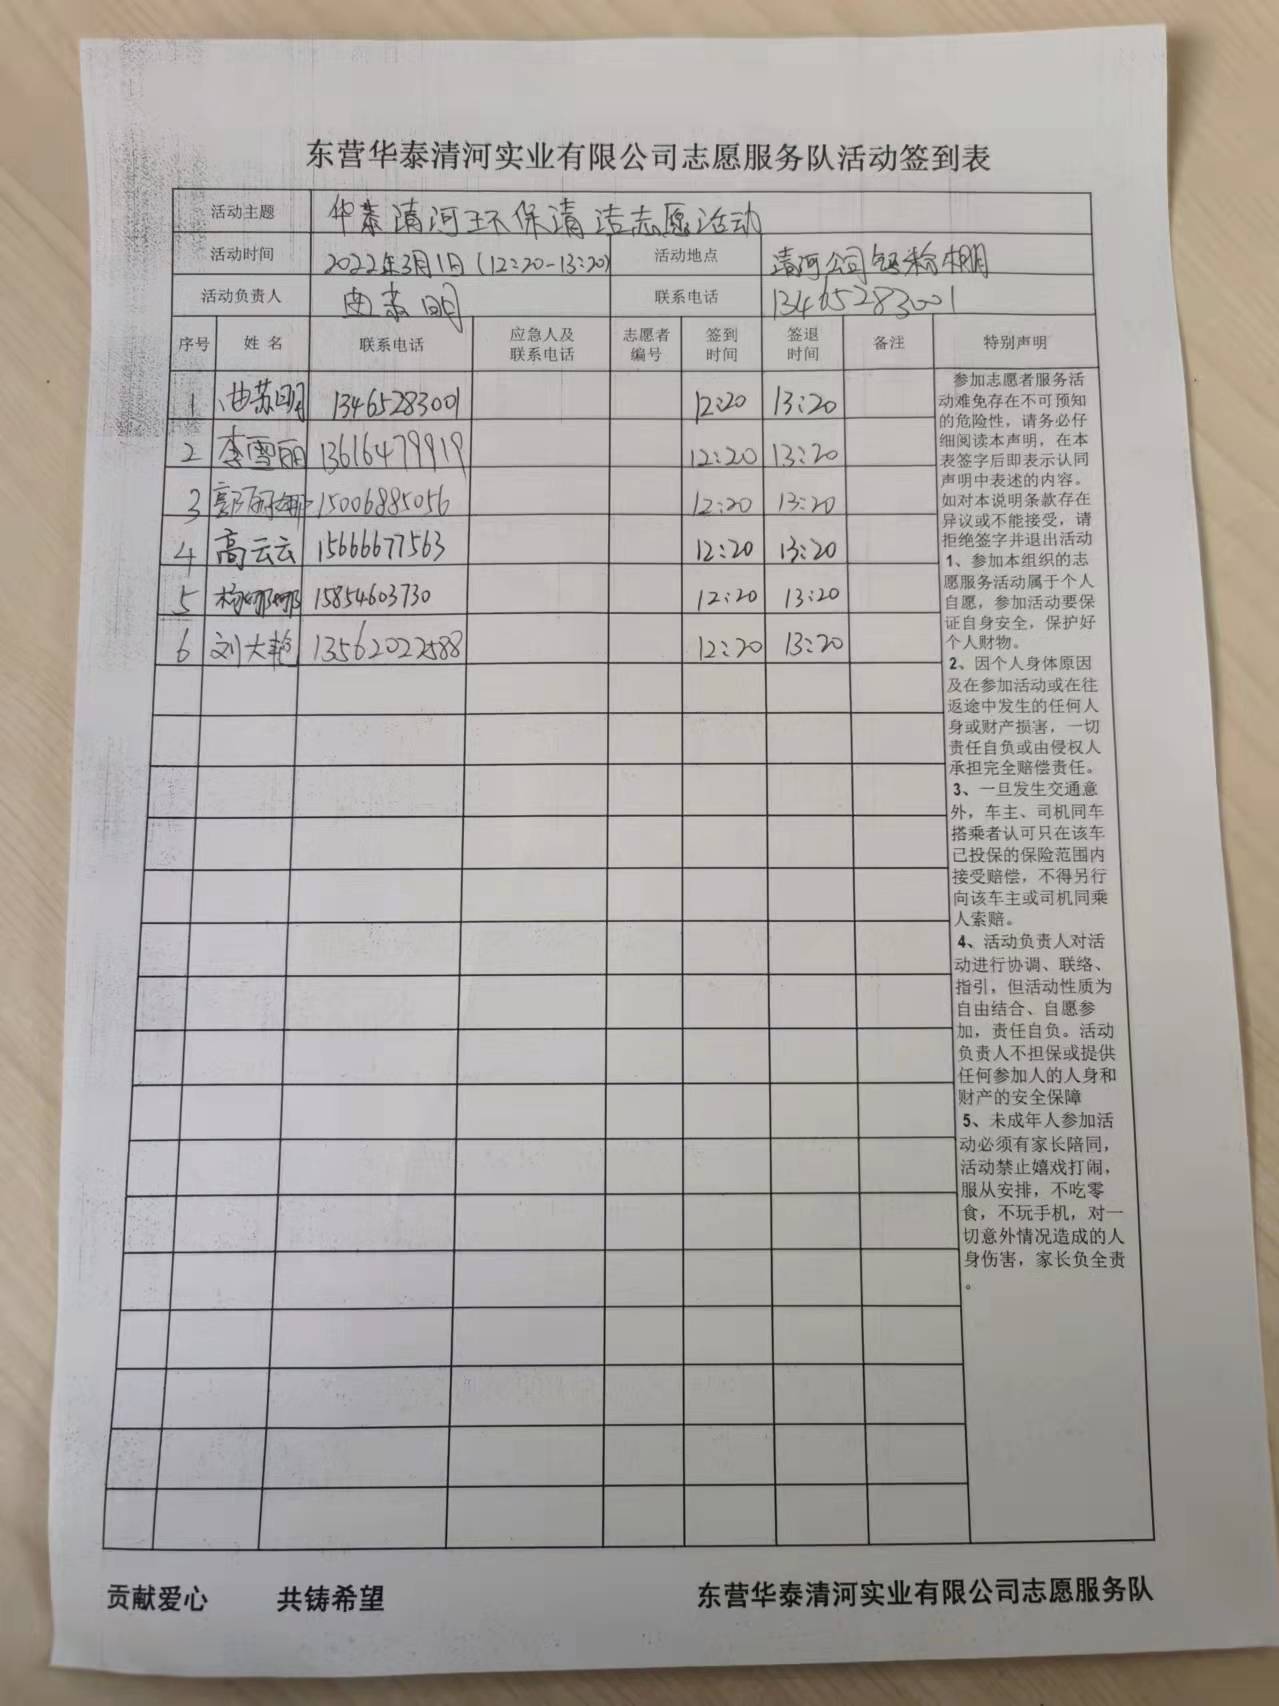 东营华泰清河实业有限公司志愿服务队活动签到表
活动主题 华泰清河环保清洁志愿活动
活动时间 2022年3月1日(12:20-13:20) 活动地点 清河公司 棚
活动负责人 曲苏明 联系电话 13465283001
序号 姓名 联系电话 应急人及联系电话 志愿者编号 签到时间 签退时间 备注 特别声明
1、曲苏明 13465283001 12:20 13:20
2 李雪丽 13616479919 12:20 13:20
3 郭丽娜 15006885056 12:20 13:20
4 高云云 15666677563 12:20 13:20
5 杨娜娜 15854603730 12:20 13:20
6 刘大艳 13562022588 12:20 13:20
参加志愿者服务活
动难免存在不可预知
的危险性，请务必仔
细阅读本声明，在本
表签字后即表示认同
声明中表述的内容。
如对本说明条款存在
异议或不能接受，请
拒绝签字并退出活动
1、参加本组织的志
愿服务活动属于个人
自愿，参加活动要保
证自身安全，保护好
个人财物。
2、因个人身体原因
及在参加活动或在往
返途中发生的任何人
身或财产损害，一切
责任自负或由侵权人
承担完全赔偿责任。
3、一旦发生交通意
外，车主、司机同车
搭乘者认可只在该车
已投保的保险范围内
接受赔偿，不得另行
向该车主或司机同乘
人索赔。
4、活动负责人对活
动进行协调、联络、
指引，但活动性质为
自由结合、自愿参
加，责任自负。活动
负责人不担保或提供
任何参加人的人身和
财产的安全保障
5、未成年人参加活
动必须有家长陪同，
活动禁止嬉戏打闹，
服从安排，不吃零
食，不玩手机，对一
切意外情况造成的人
身伤害，家长负全责
。
贡献爱心 共铸希望 东营华泰清河实业有限公司志愿服务队